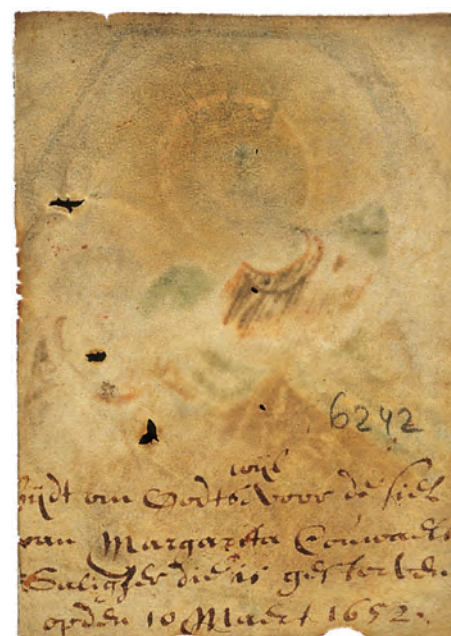 6242
wijl
bijdt om Godts voor de siel
van Margarita Couwaels
Saligher die is gestorven
opden 10 Maert 1652.